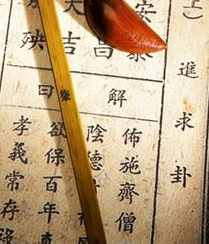 上）
進求卦
安泰
昌
大吉
殃
解曰
佈施齊僧
陰德
欲保百年
孝義常存